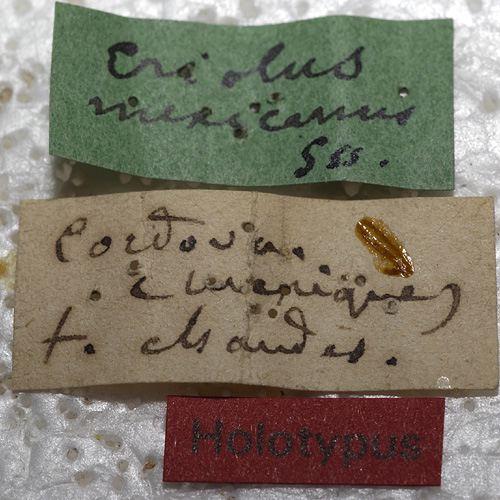 Eriolus
mexicanus
Sss.
Cordova.
(Mexique)
t. Mandes.
Holotypus